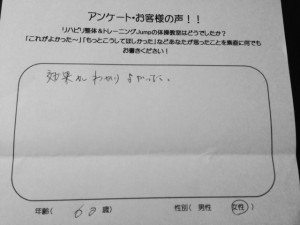 アンケート・お客様の声！！
リハビリ整体&トレーニングJumpの体操教室はどうでしたか？
「これがよかった～」「もっとこうしてほしかった」などあなたが思ったことを素直に何でも
お書きください！
効果が わかり やすい。
年齢( 60 歳) 性別( 男性 女性 )